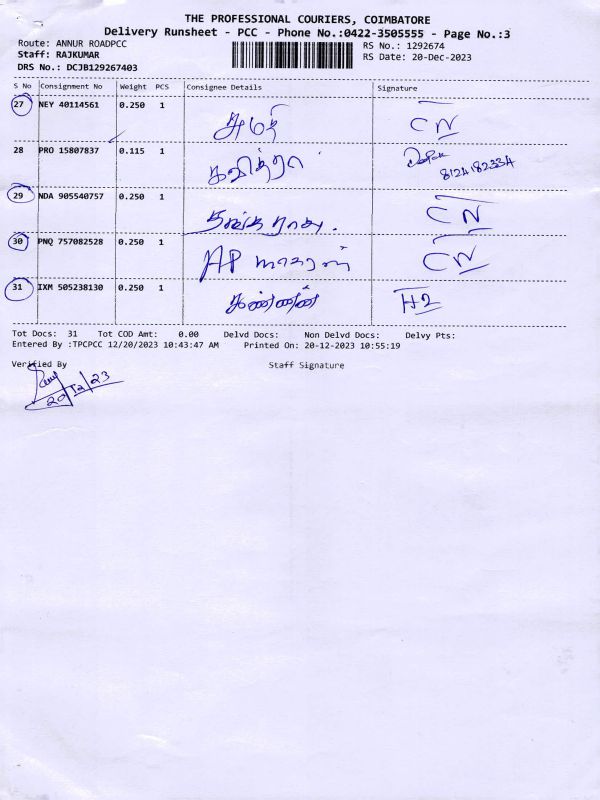 THE PROFESSIONAL COURIERS, COIMBATORE
Delivery Runsheet - PCC - Phone No.:0422-3505555 - Page No.:3
Route: ANNUR ROADPCC RS No.: 1292674
Staff: RAJKUMAR RS Date: 20-Dec-2023
DRS No.: DCJB129267403
S No Consignment No Weight PCS Consignee Details Signature
27 NEY 40114561 0.250 1 CN
28 PRO 15807837 0.115 1
29 NDA 905540757 0.250 1 CN
30 PNQ 757082528 0.250 1 AP CN
31 IXM 505238130 0.250 1 கண்ணன் H2
Tot Docs: 31 Tot COD Amt: 0.00 Delvd Docs: Non Delvd Docs: Delvy Pts:
Entered By :TPCPCC 12/20/2023 10:43:47 AM Printed On: 20-12-2023 10:55:19
Verified By Staff Signature
20/12/23